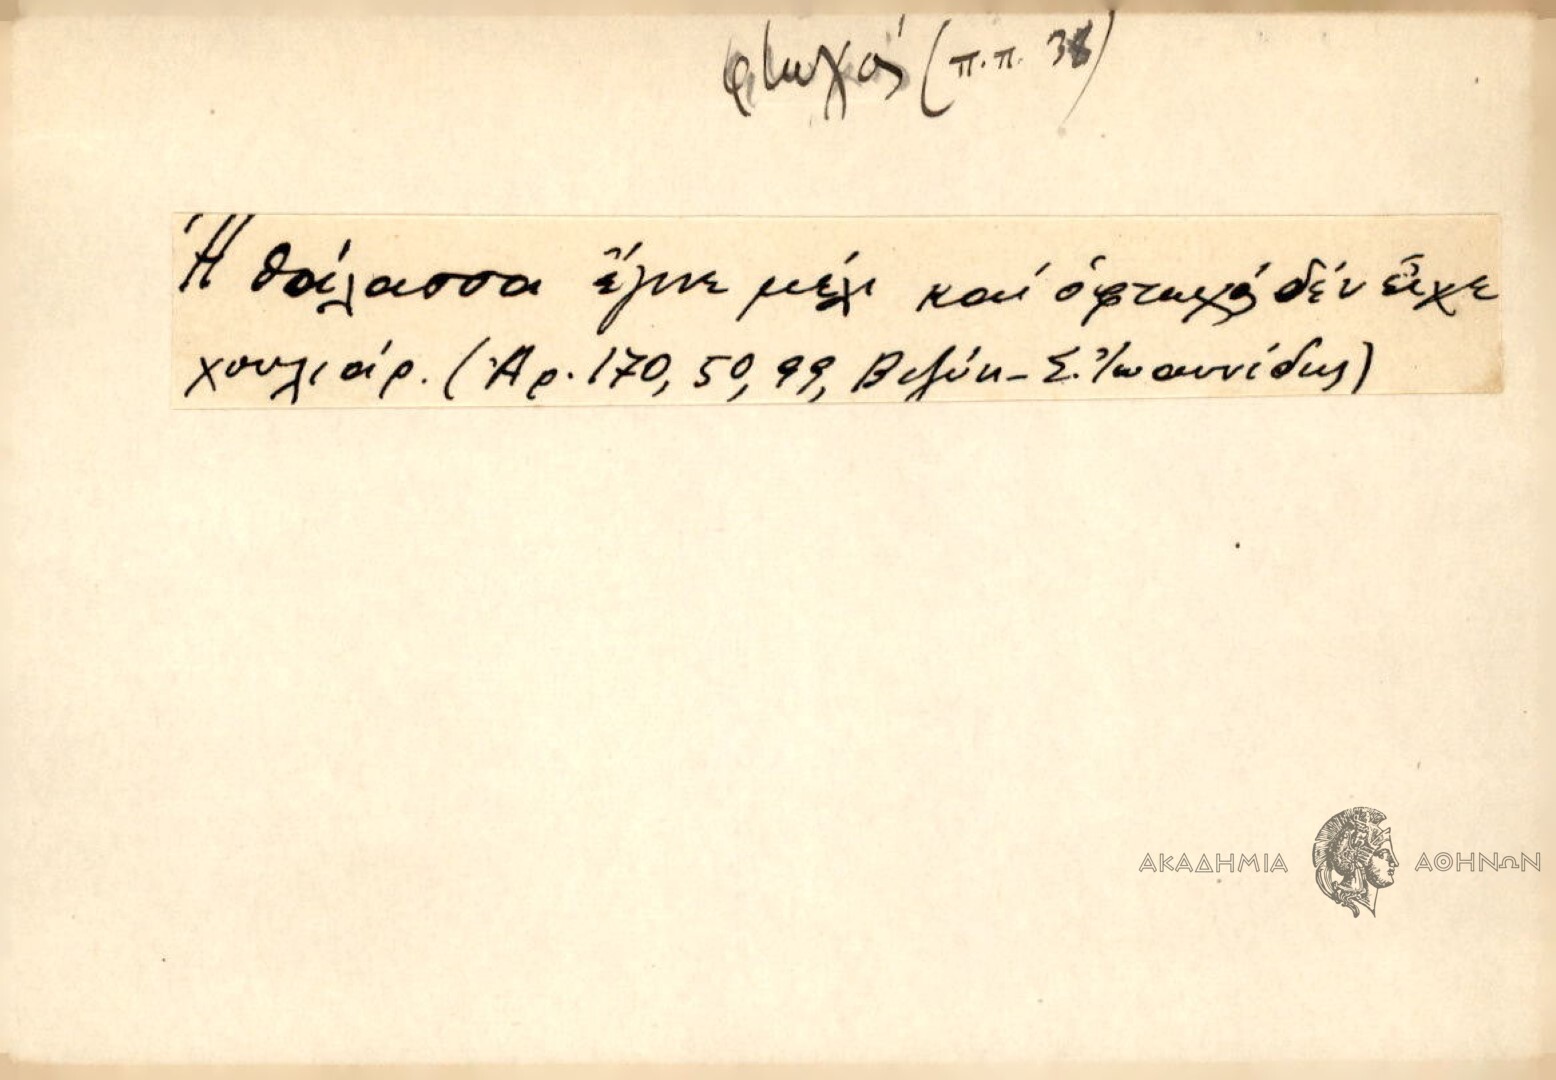 φτωχός (π.π. 38)
Ἡ θάλασσα ἔγινε μέλι καί ὁ φτωχός δέν εἶχε
χουλιάρ. (Ἀρ. 170, 50, 99, Βιζύη - Σ. Ἰωαννίδης)
ΑΚΑΔΗΜΙΑ ΑΘΗΝΩΝ